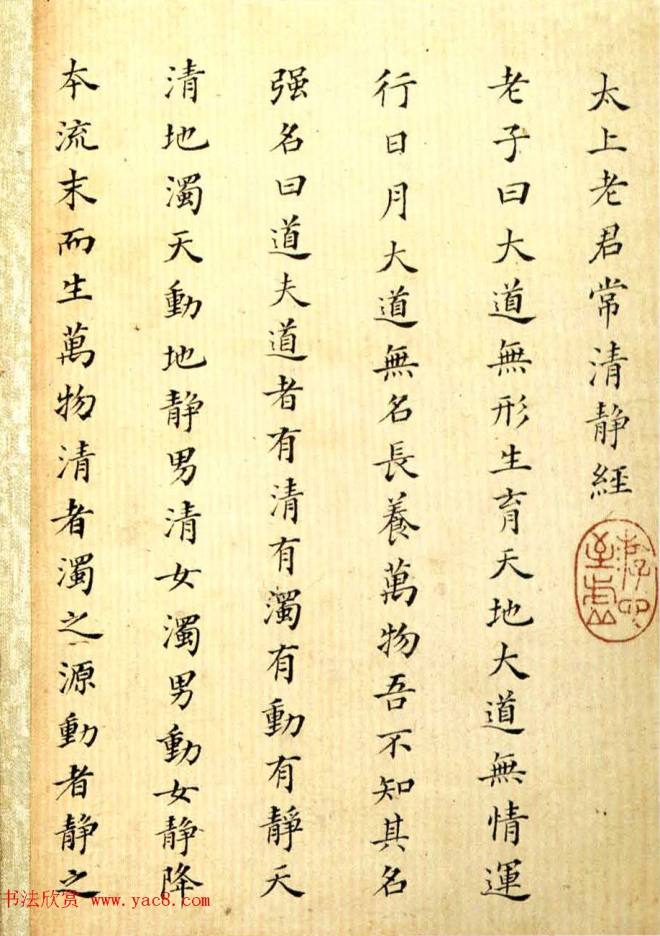 太上老君常清静經
老子曰大道無形生育天地大道無情運
行日月大道無名長養萬物吾不知其名
强名曰道夫道者有清有濁有動有靜天
清地濁天動地静男清女濁男動女静降
本流末而生萬物清者濁之源動者静之
书法欣赏 www.yac8.com